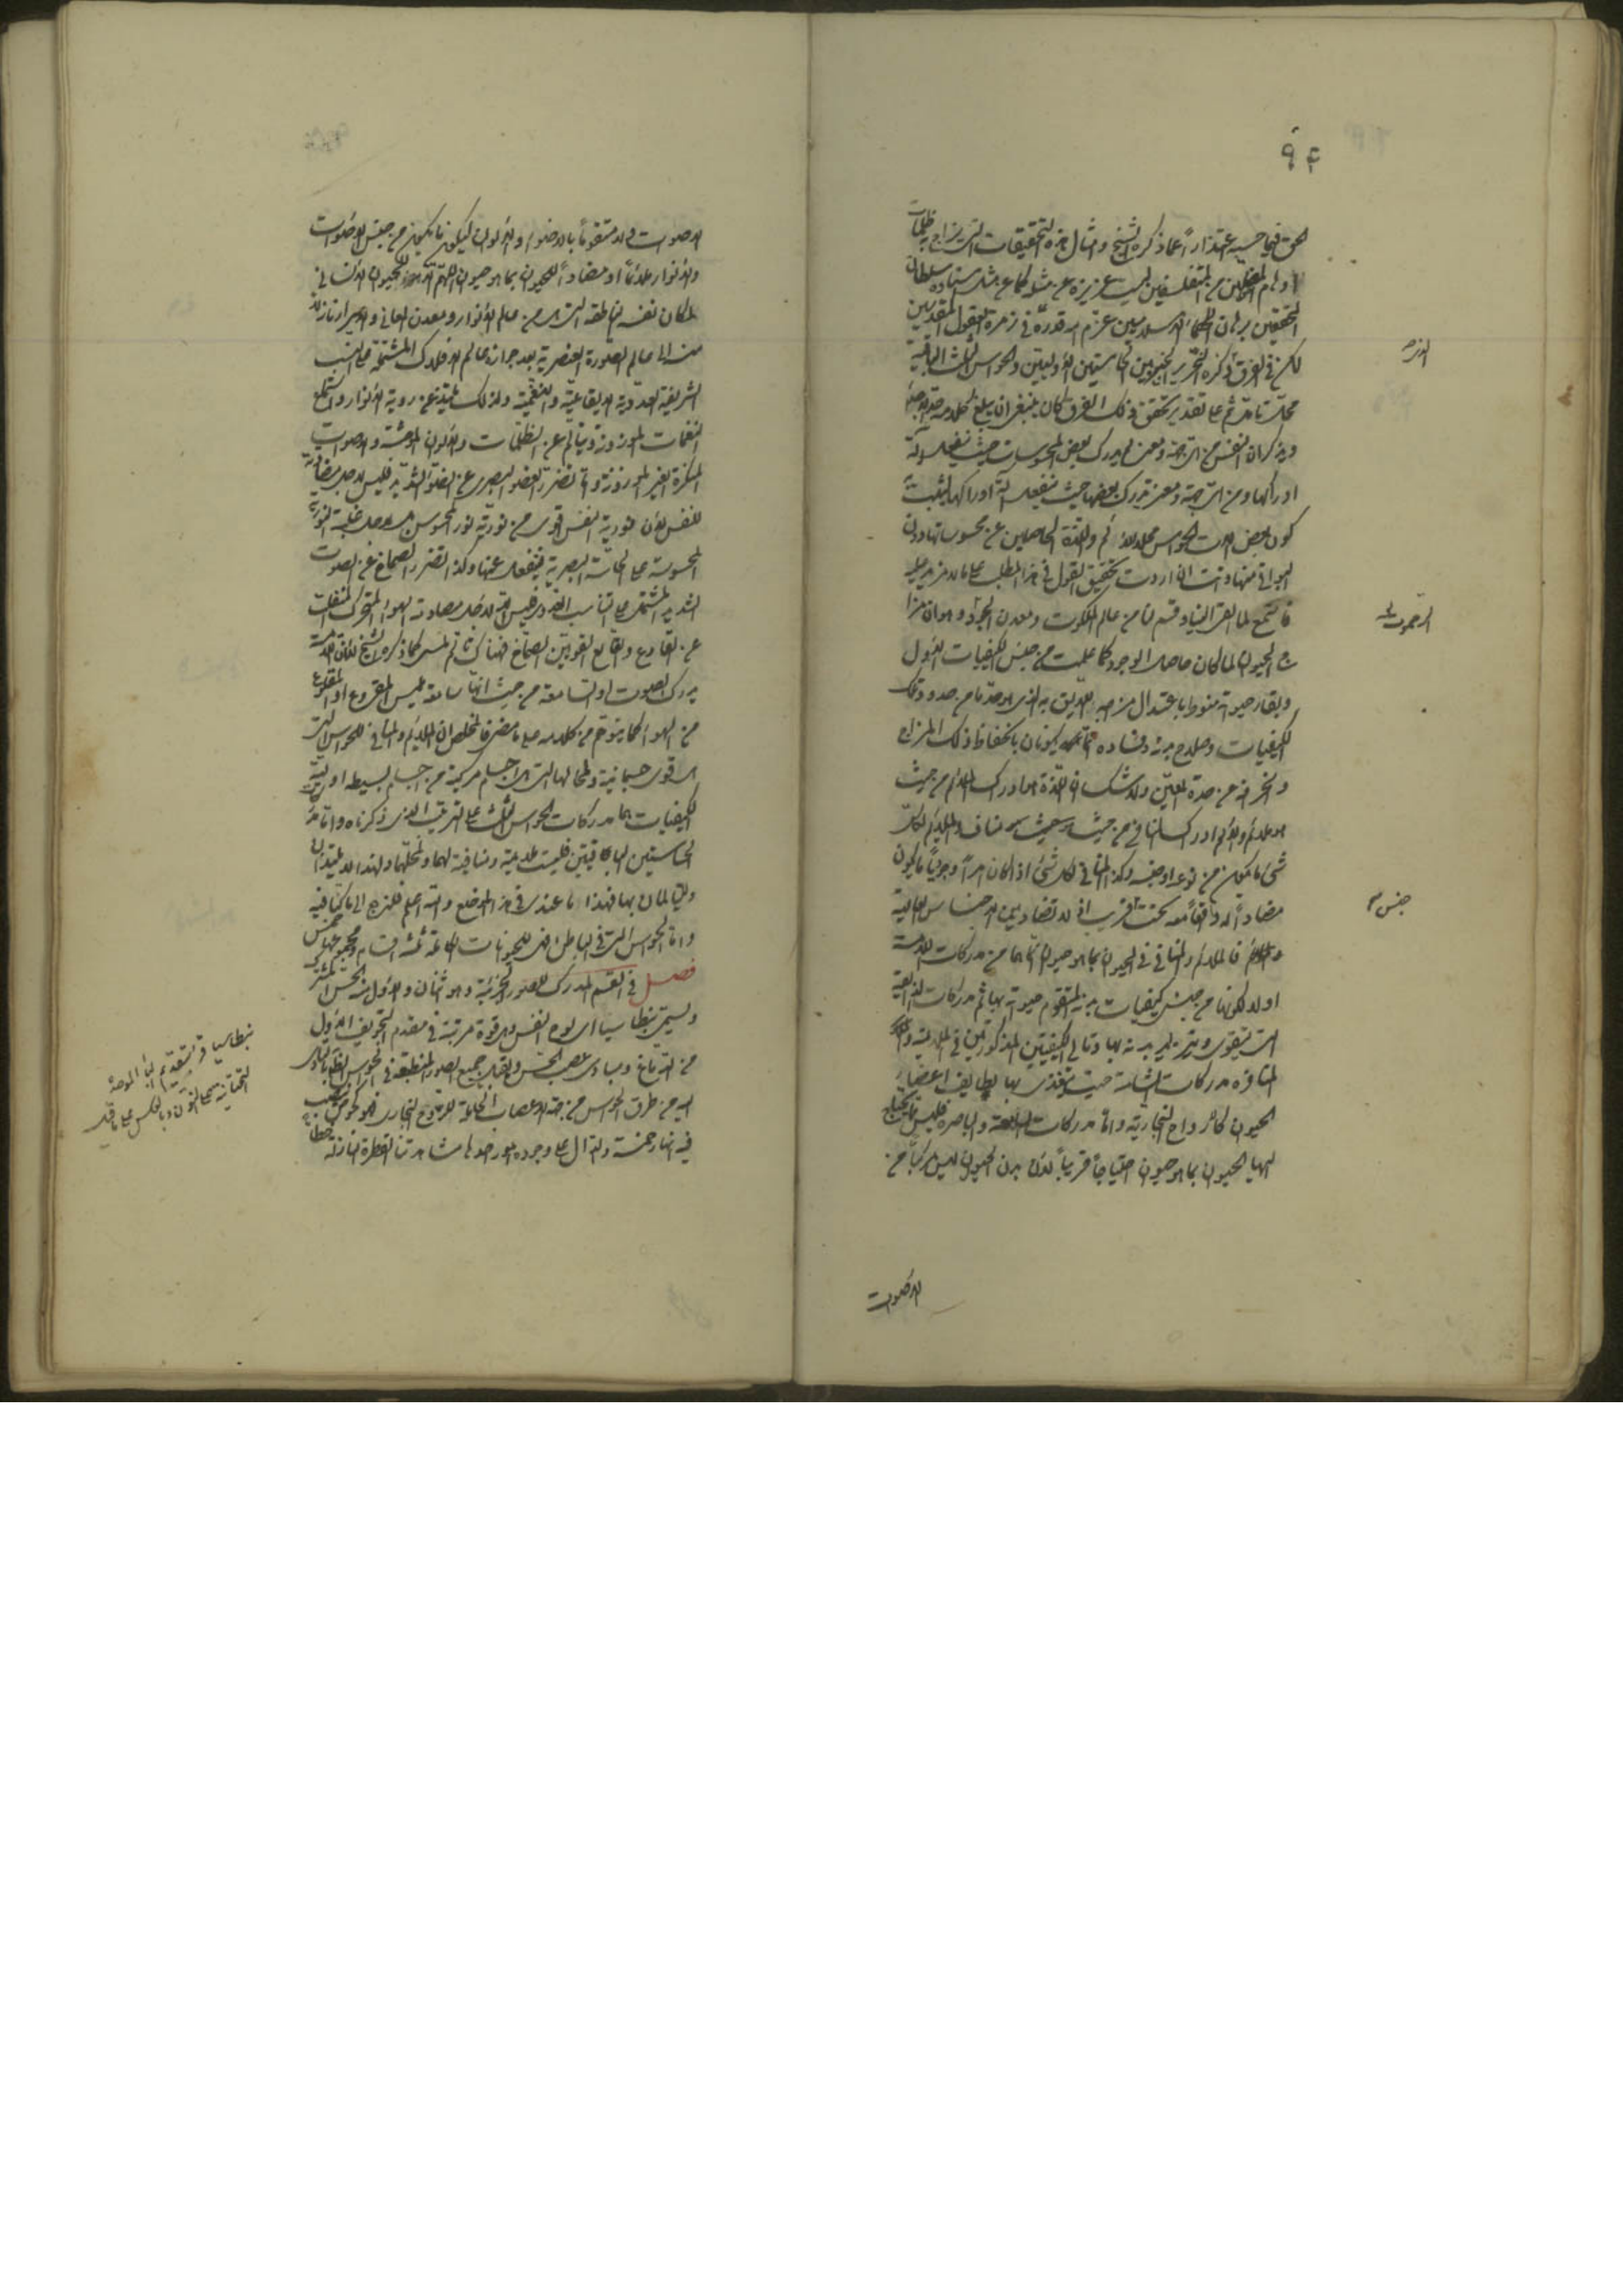 ٩٤
الحق فيما حسبه اعتذاراً عما ذكره الشيخ وامثال هذه التحقيقات التي يزاح بها ظلمات
اوهام المضلين من المتفلسفين ليست عزيزة عن مثله كما عن مثل استاده سلطان
المحققين برهان الحكماء الاسلاميين عزّم الله قدره في زمرة العقول المقدسين
لكن في الفرق الذي ذكره التحرير بين الحاستين الاوليين والحواس الثلث الباقية
محل تامل ثم على تقدير تحقق ذلك الفرق كان ينبغي ان يبلغ كلامه حد الاجداء
ويذكر ان النفس من اي جهة ومعنى يدرك بعض المحسوسات حيث ينفعل آلة
ادراكها ومن اي جهة ومعنى تدرك بعضها حيث ينفعل آلة ادراكها ليثبت
كون بعض آلات الحواس محلا للالم واللذة الحاصلين عن محسوساتها دون
البواقي منها وانت ان اردت تحقيق القول في هذا المطلب على ما لا مزيد عليه
فاستمع لما القي الينا وقسم لنا من عالم الملكوت ومعدن الجبروت وهو ان مزاج
الحيوان لما كان حاصل الوجود كما علمت من جنس الكيفيات الاول
وبقاء حيوته منوطا باعتدال مزاجه اللايق به الذي هو حد ما من حدود تلك
الكيفيات وصلاح بدنه وفساده انما يكونان بانحفاظ ذلك المزاج
وانحرافه عن حده المعين ولا شك ان اللذة هي ادراك الملائم من حيث
هو ملائم والالم ادراك المنافي من حيث هو مناف والملائم لكل
شئ ما يكون من نوعه او جنسه وكذا المنافي لكل شئ اذا كان امراً وجودياً ما يكون
مضاداً له واقعاً معه تحت جنس قريب اذ لا تضاد بين الاجناس العالية
فالملائم والمنافي في الحيوان بما هو حيوان انما هما من مدركات اللامسة
اولا لكونها من جنس كيفيات بدنه المتقوم حيوته بها ثم مدركات الذائقة
التي يتقوى وتزيد بدنه بها وتالي الكيفيتين المذكورتين في الملايمة
والمنافرة مدركات الشامة حيث يتغذى بها لطايف اعضاء
الحيوان كالارواح البخارية واما مدركات السامعة والباصرة فليس مما يحتاج
اليها الحيوان بما هو حيوان احتياجاً قريباً لان بدن الحيوان ليس مركباً من
الاصوات
الجبروت
جنس
الاصوات ولا متقوماً بالاضواء والالوان ليكون ما يكون من جنس الاصوات
والانوار ملائماً او مضاداً للحيوان بما هو حيوان اللهم الا الحيوان الانساني
لمكان نفسه الناطقة التي هي من عالم الانوار ومعدن المعاني والاسرار نازلة
منه الى عالم الصورة العنصرية بعد جوازه عالم الافلاك المشتملة على النسب
الشريفة العددية الايقاعية والنغمية ولذلك يلتذ عن روية الانوار واستماع
النغمات الموزونة ويتالم عن الظلمات والالوان الموحشة والاصوات
المنكرة الغير الموزونة واما تضرر العضو البصري عن الضوء الشديد فليس لاجل مضادته
للنفس لان نورية النفس اقوى من نورية نور المحسوس بل لاجل غلبة النورية
المحسوسة على الحاسة البصرية فينفعل عنها وكذا تضرر الصماخ عن الصوت
الشديد المشتمل على التناسب العددي فليس الا لاجل مصادمة الهواء المتحرك المنفلت
عن القارع والقالع القويين للصماخ فهناك تالم لمس كما ذكره الشيخ لان القوة
مدرك الصوت او السامعة من حيث انها سامعة تلمس المقروع او المقلوع
من الهواء كما يتوهم من كلامه على ما مضى فالمخلص ان الملائم والمنافي للحواس التي
هي قوى جسمانية ولمحالها التي هي اجسام مركبة من اجسام بسيطة اولية
الكيفيات هما مدركات الحواس الثلث على الترتيب الذي ذكرناه واما مدركات
الحاستين الباقيتين فليست ملايمة ومنافية لهما ولمحليهما ولهذا لا يلتذان
ولا يتالمان بها فهذا ما عندي في هذا الموضع والله اعلم فلنرجع الى ما كنا فيه
واما الحواس التي في الباطن فهي للحيوانات الكاملة ثلثة اقسام ومجموعها خمس
فصل في القسم المدرك للصور الجزئية وهو اثنان والاول منه الحس المشترك
ويسمى بنطاسيا اي لوح النفس وهو قوة مرتبة في مقدم التجويف الاول
من الدماغ ومبادي عصب الحس والقابل جميع الصور المنطبعة في الحواس الظاهرة المتادي
اليه من طرق الحواس من جهة الاعصاب الحاملة للروح البخاري فهو كحوض ينصب
فيه انهار خمسة والدال على وجوده امور احدها مشاهدتنا القطرة النازلة خطا
بنطاسيا قرئ بتقديم الباء الموحدة
التحتانية على النون وبالعكس على ما قيل